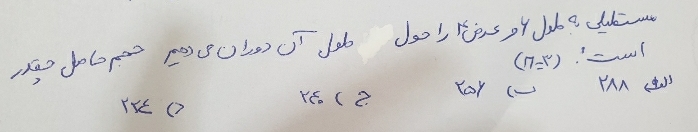 مستطیلی به طول ۶ و عرض ۴ را حول طول آن دوران می دهیم حجم حاصل چقدر
است؟ (π=۳)
الف) ۲۸۸ ب) ۲۵۶ ج) ۲۴۰ د) ۲۳۴